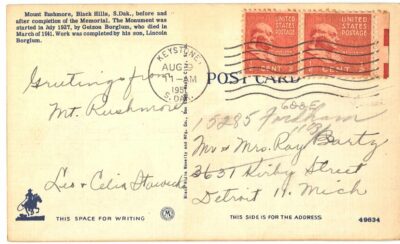 Mount Rushmore, Black Hills, S. Dak., before and
after completion of the Memorial. The Monument was
started in July 1927, by Gutzon Borglum, who died in
March of 1941. Work was completed by his son, Lincoln
Borglum.
KEYSTONE
AUG
11-AM
195
S. DAK.
UNITED STATES POSTAGE
UNITED STATES POSTAGE
CENT
POST CARD
Greetings from
Mt. Rushmore
Leo & Celia
15285 Fordham
Mr & Mrs. Ray Bartz
3651 Kirby Street
Detroit 11, Mich
THIS SPACE FOR WRITING
THIS SIDE IS FOR THE ADDRESS.
49634